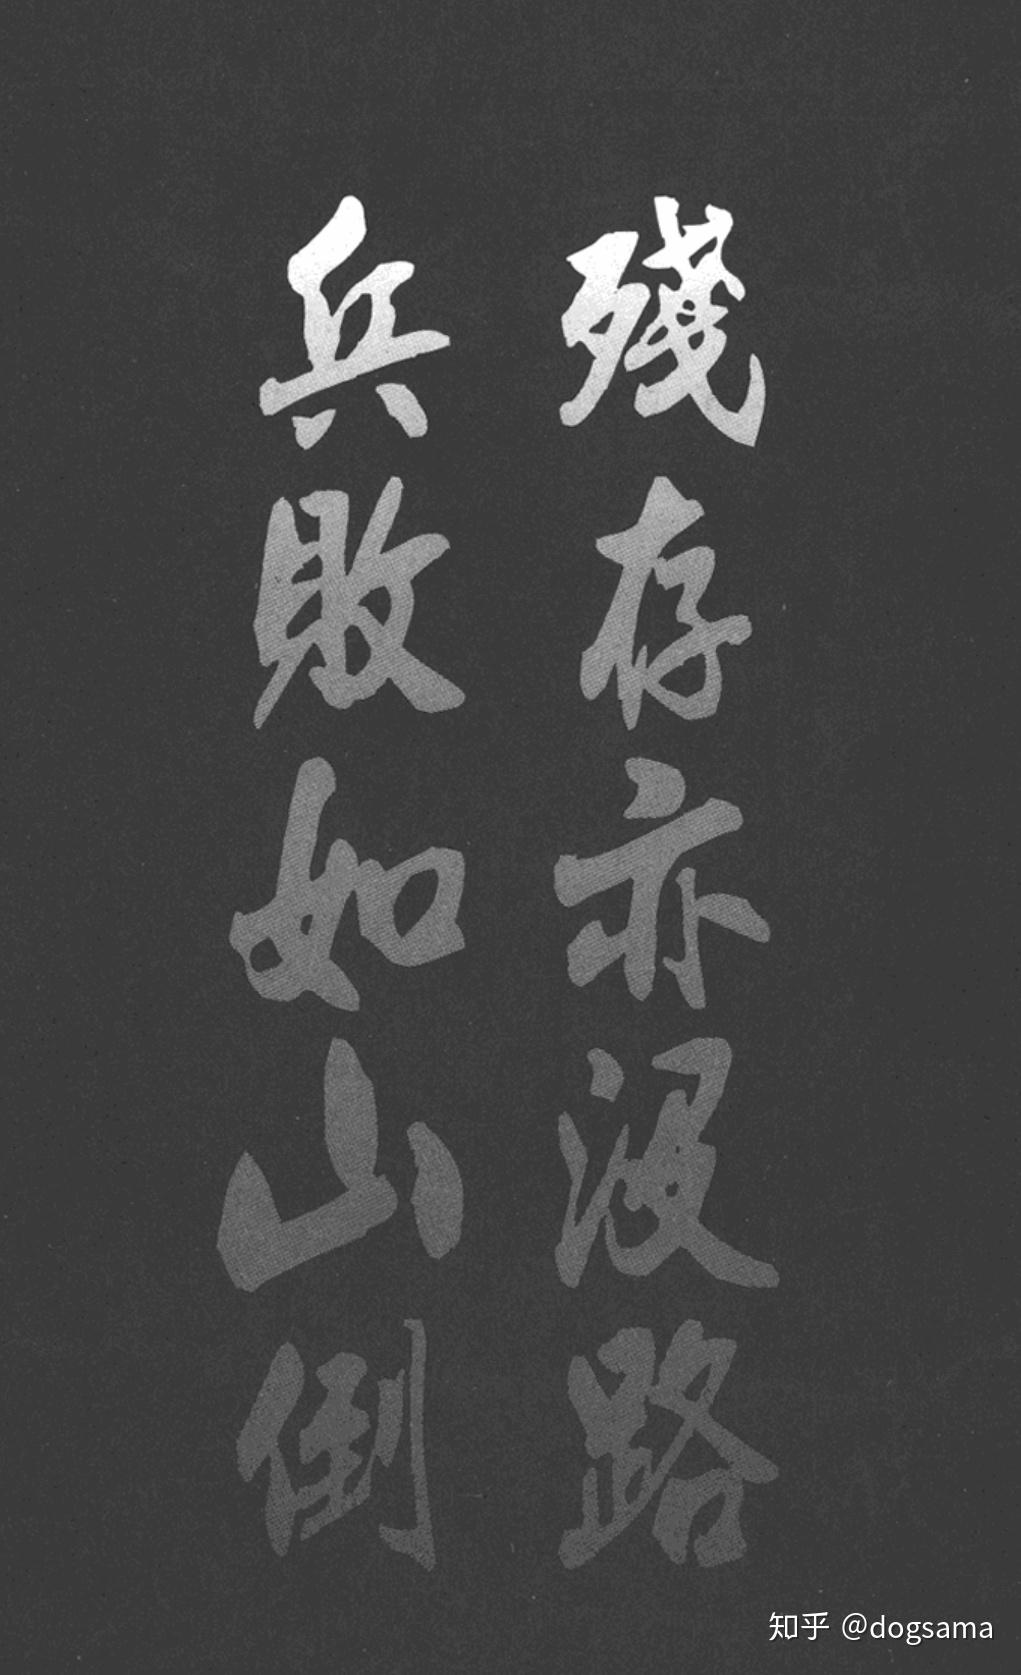 殘存亦沒路
兵敗如山倒
知乎 @dogsama